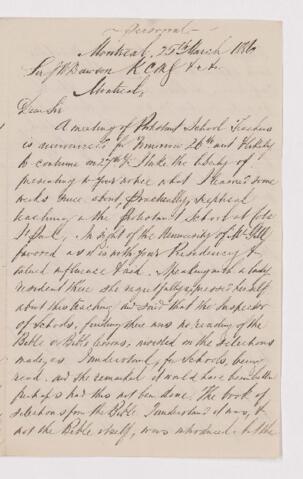 Personal
Montreal, 25th March 1886
Sir J W Dawson K C M G &c &c
Montreal,
Dear Sir
A meeting of Protestant School Teachers
is announced for tomorrow 26th and likely
to continue on 27th. I take the liberty of
presenting to your notice what I learned some
weeks since about practically, sceptical
teaching, in the Protestant School at Cote
St Paul, in sight of the University of McGill
favored as it is with your Presidency &
valued influence & aid. Speaking with a lady
resident there she regretfully expressed herself
about this teaching and said that the Inspector
of Schools, finding there was no reading of the
Bible or Bible lessons, insisted on the selections
made, as I understand, for Schools, being
read, and she remarked it would have been better
perhaps had this not been done. The book of
selections from the Bible I understand it was, &
not the Bible itself, was introduced but the